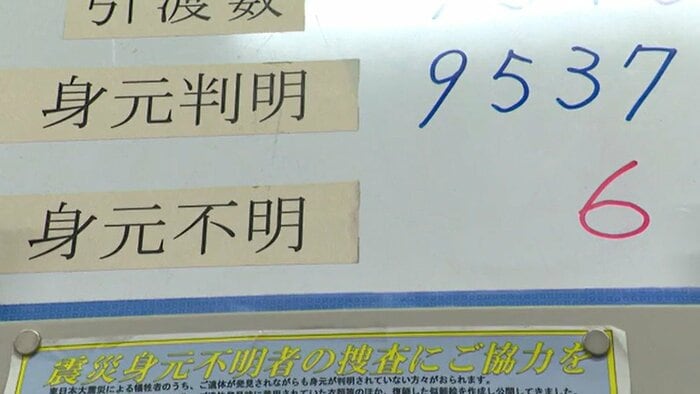 引渡数
身元判明 9537
身元不明 6
震災身元不明者の捜査にご協力を
東日本大震災による犠牲者のうち、ご遺体が発見されながらも身元が判明されていない方々がおられます。